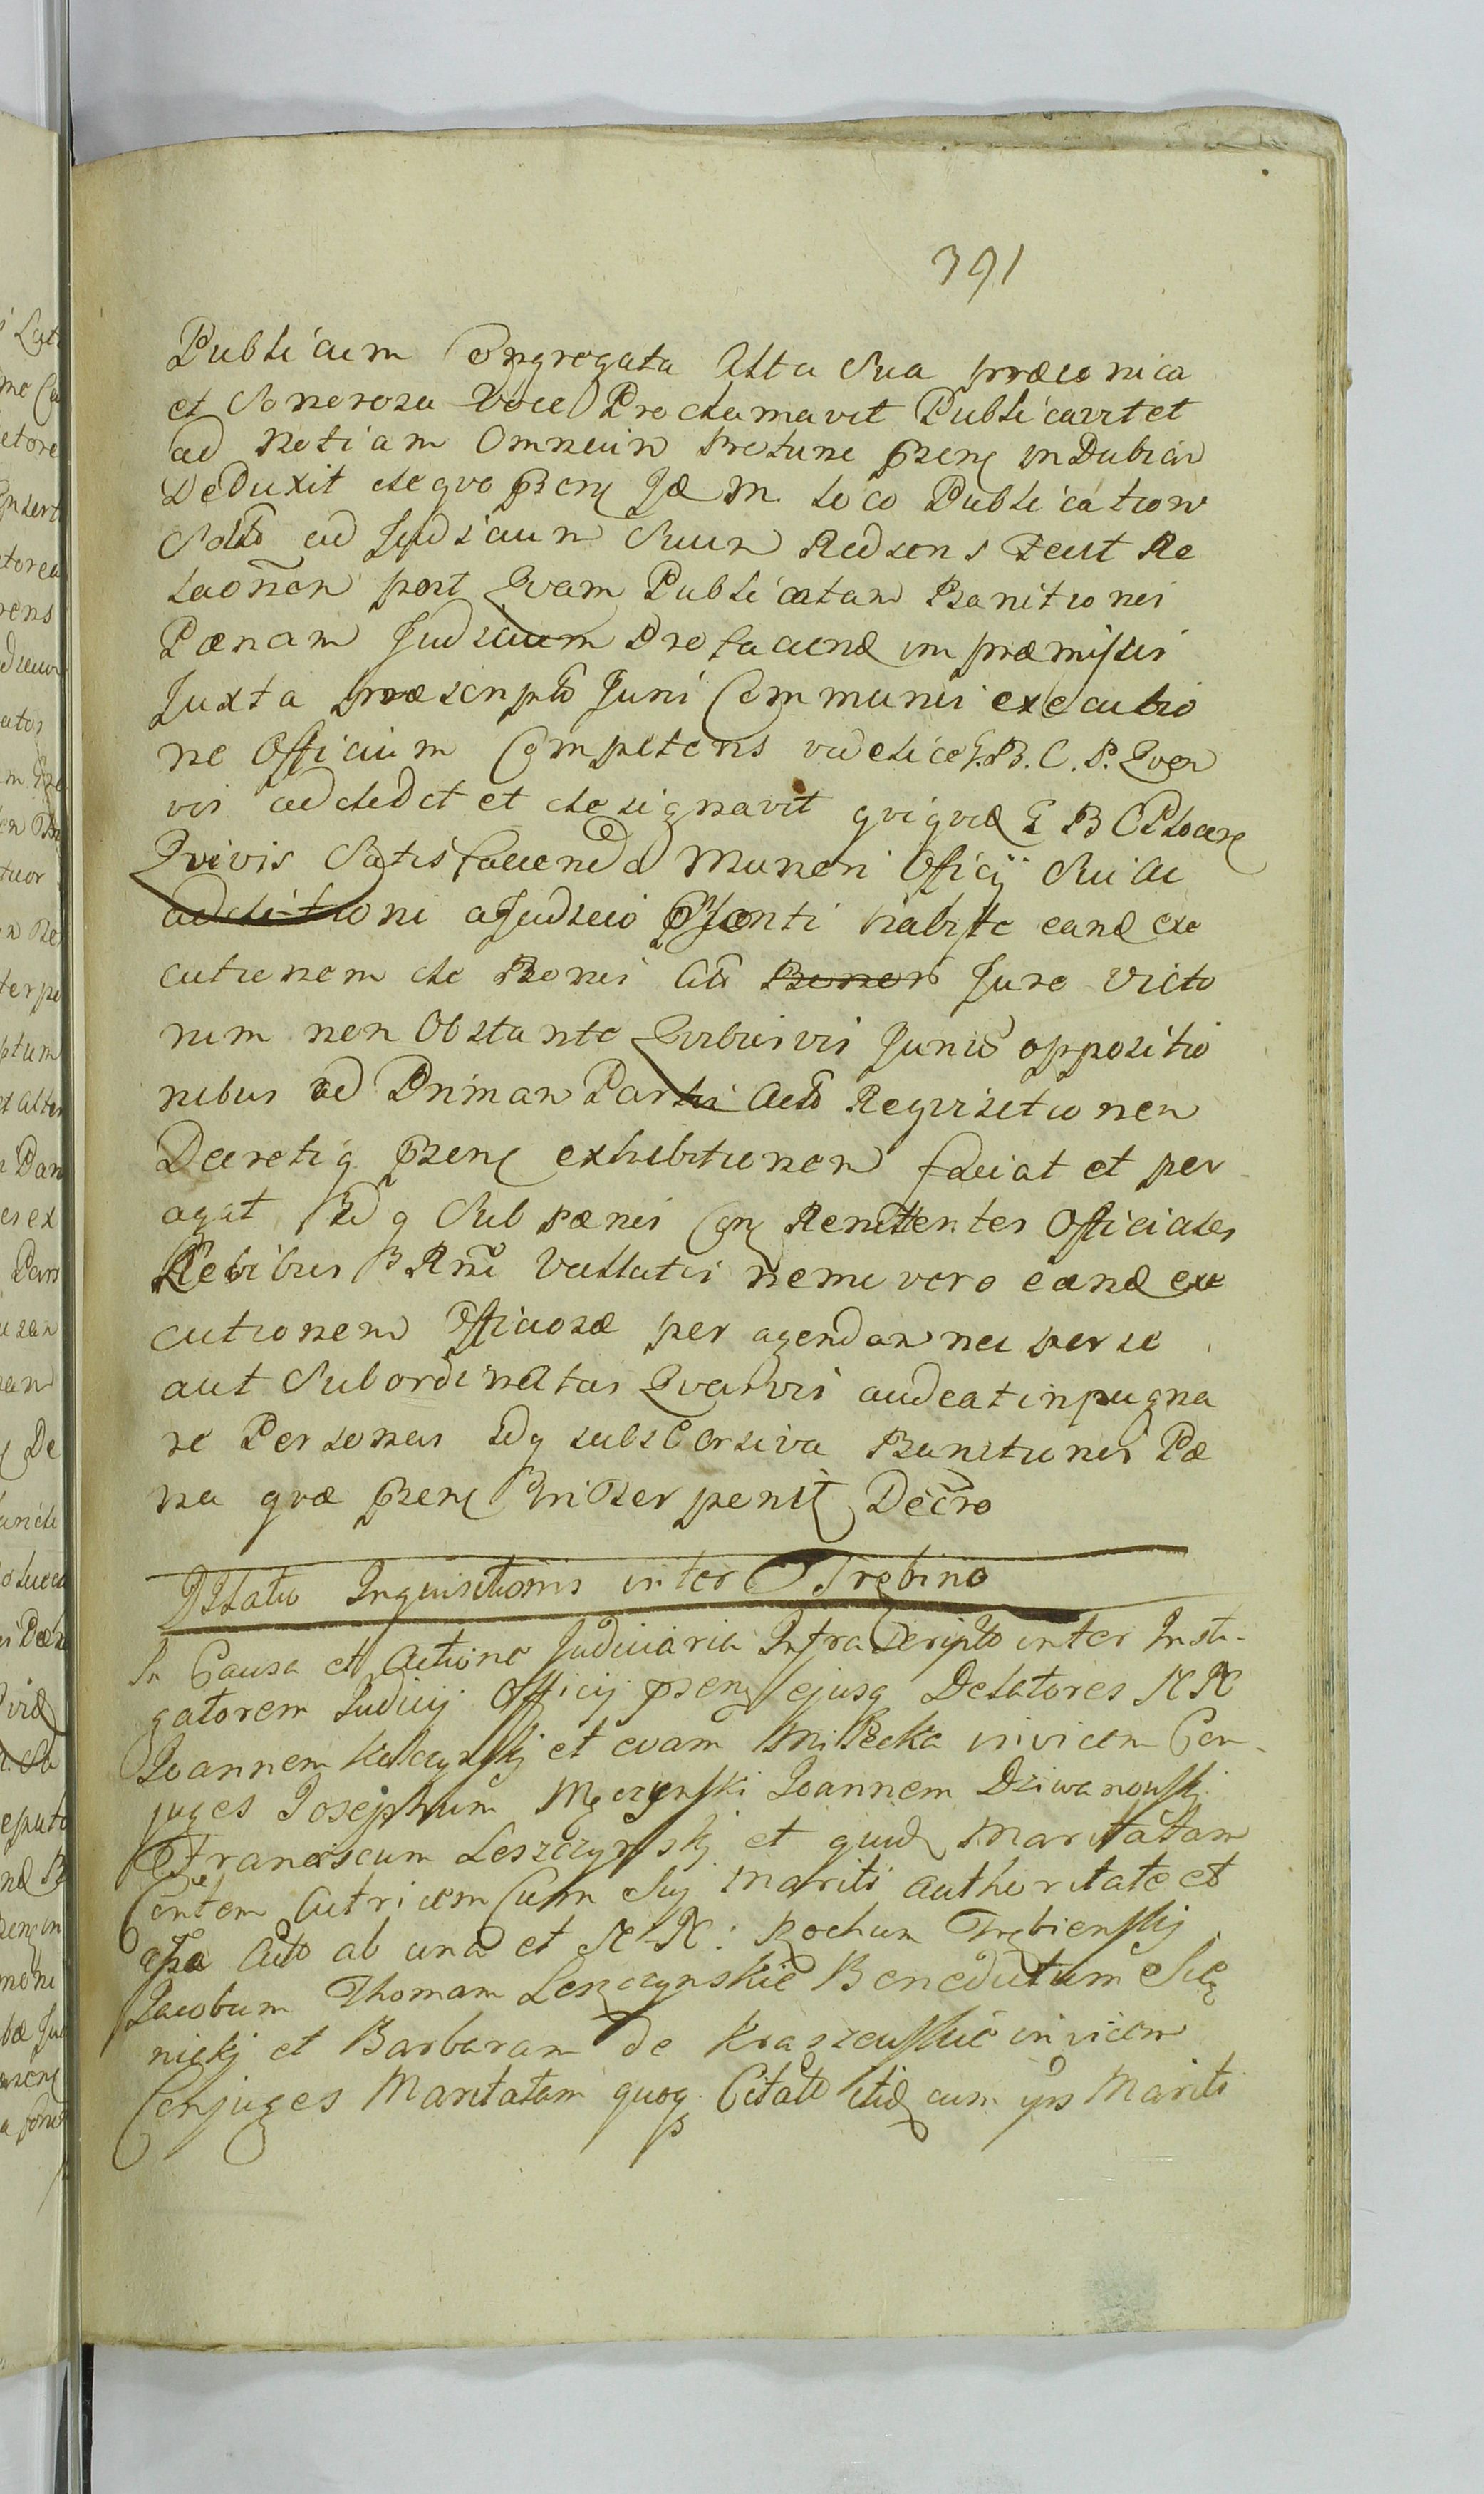 391
Publicum Congregata Alta Sua præconica
et Sonorosa Voce Proclamavit Publicavit et
ad Notiam Omnium Protunc pñns in Dubiam
Deduxit de qva pñns Jæ M. loco Publication
Solito ad Judicium Suum Rediens Fecit Re
laõnem post Qvam Publicatam Banitionis
Pœnam Judicium Pro faciend in præmissis
Juxta præscriptõ Juris Communis executio
ne Officium Competens videlicet G. B. C. P. Qvem
vis addidit et designavit qviqvid G B C P
Qvivis Satisfaciendo Muneri Officij Sui ac
additioni a Judicio pñsenti habitæ eand exe
cutionem de Bonis Citõ Jure Victo
rum non Obstante Qvibusvis Juris oppositio
nibus ad Primam Partis Actõ Reqvisitionem
Decretiq pñns exhibitionem faciat et per
agat Idq Sub pœnis Con Renittentes Officiales
Legibus Rñi Vallatis nemo vero eand exe
cutionem Officiose per agendam nec per se
aut Subordinatas Qvasvis audeat inpugna
re Personas Idq sub Banitionis Pœ
na qvæ pñns Decro
Dilatio Inquisitionis inter Trębino
In Causa et Actione Judiciaria Infrascripto inter Insti-
gatorem Judicij Officij pñns ejusq Delatores N N
Joannem et evam Miłecka invicem Con-
juges Josephum Męczynski Joannem Dziwanowskj
Franciscum Leszczynskj et quid Maritatam
Contem Actricem Cum Suj Mariti authoritate et
assa Acto ab una et N N: Rochum Trębienskj
Jacobum Thomam Leszczynskie Benedictum Sie
nickj et Barbaram de Kraszewskie invicem
Conjuges Maritatam quoq Citato itid cum ips Mariti